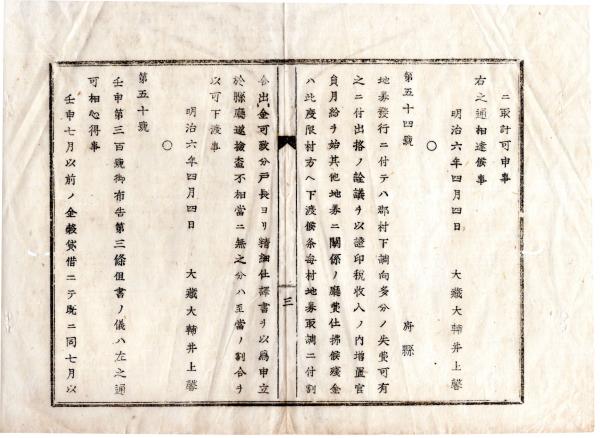 ニ取計可申事
右之通相達候事
明治六年四月四日　大藏大輔井上馨
○
第五十四號
府縣
地券發行ニ付テハ郡村下調向多分ノ失費可有
之ニ付出格ノ詮議ヲ以證印税收入ノ内増置官
員月給ヲ始其他地券ニ關係ノ廳費仕拂候殘金
ハ此度限村方ヘ下渡候条毎村地券取調ニ付割
合出金可致分戸長ヨリ精細仕譯書ヲ以爲申立
於縣廳遂檢査不相當ニ無之分ハ至當ノ割合ヲ
以可下渡事
明治六年四月四日　大藏大輔井上馨
三
○
第五十號
壬申第三百號御布告第三條但書ノ儀ハ左之通
可相心得事
壬申七月以前ノ金穀貸借ニテ既ニ同七月以